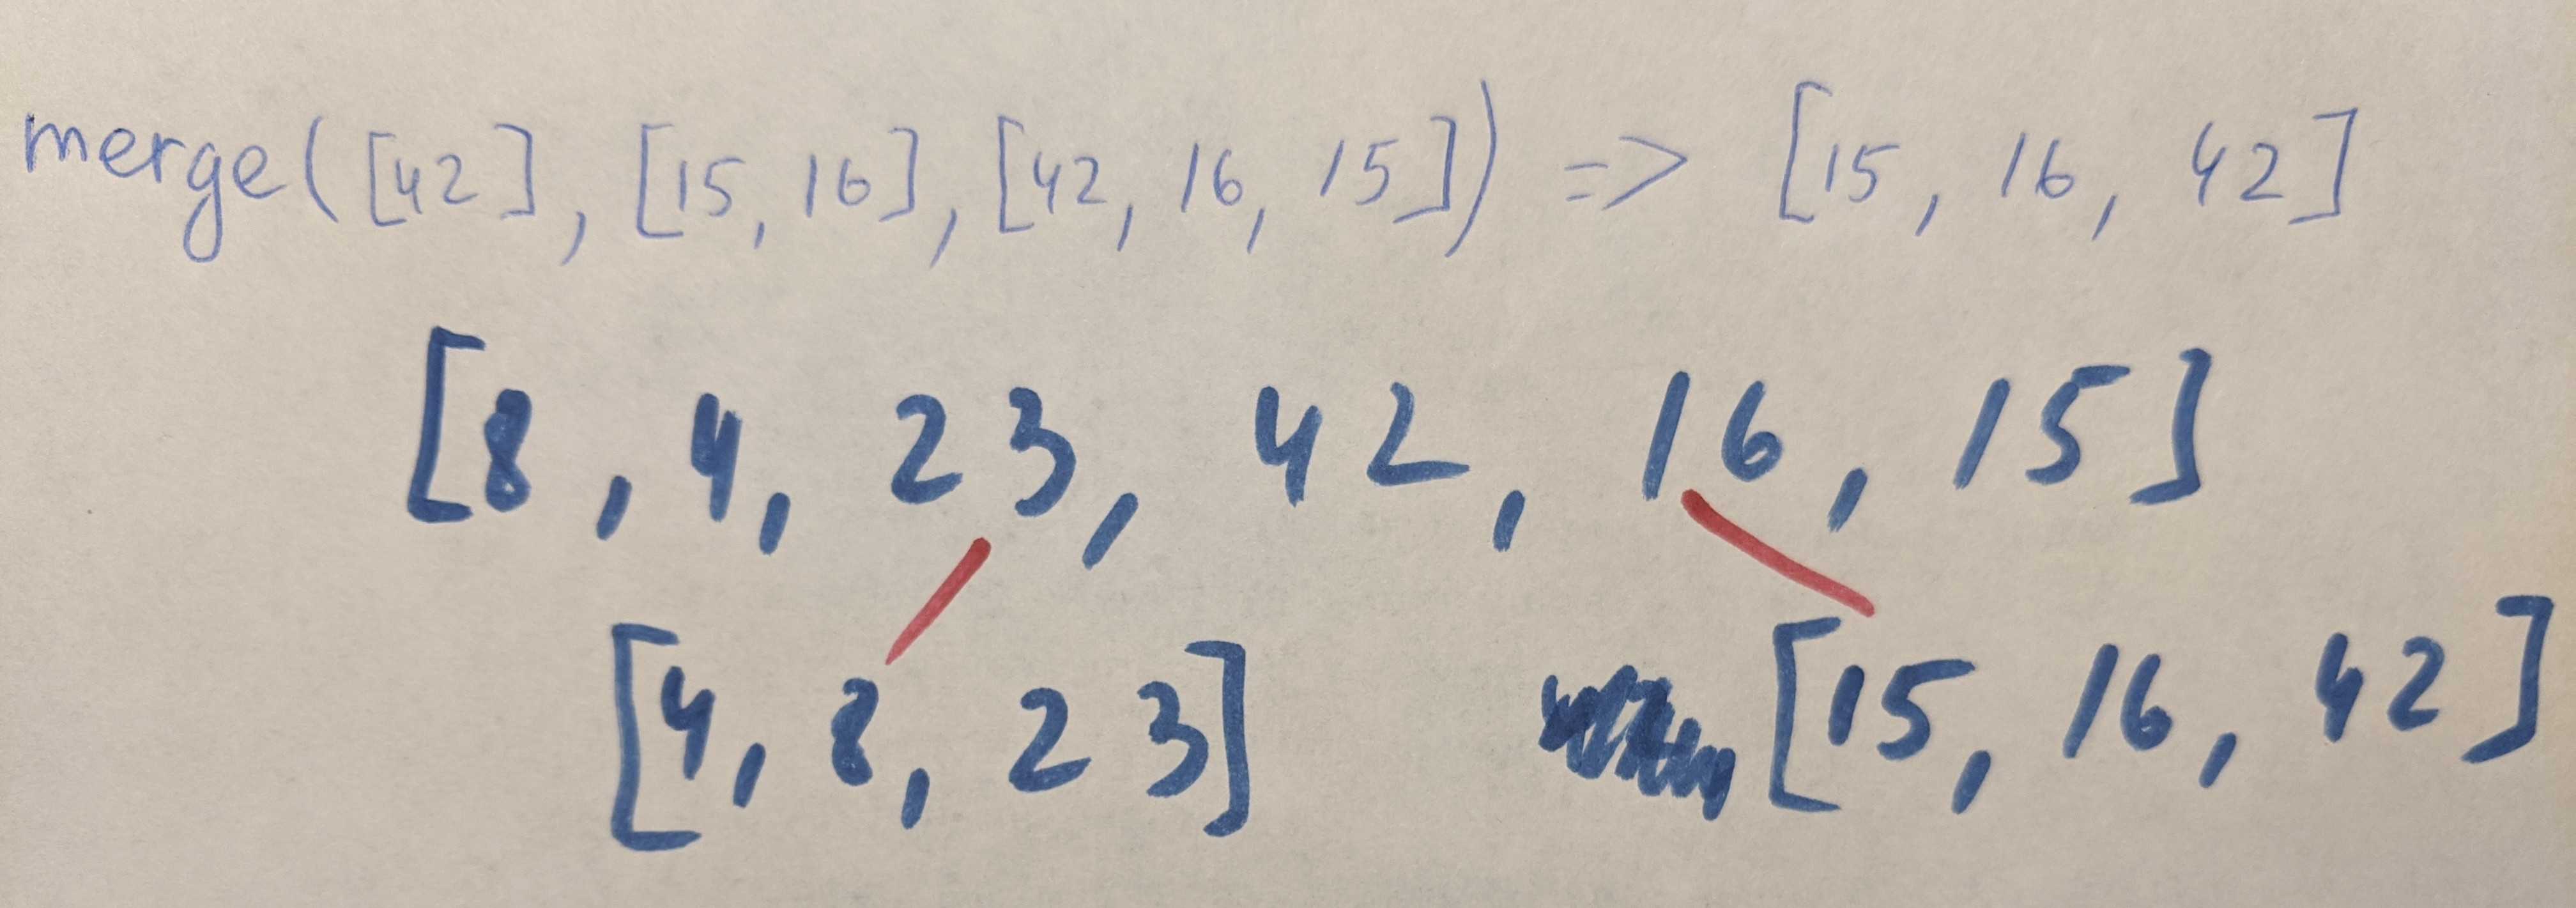 merge([42], [15, 16], [42, 16, 15]) => [15, 16, 42]
[8, 4, 23, 42, 16, 15]
[4, 8, 23] [15, 16, 42]